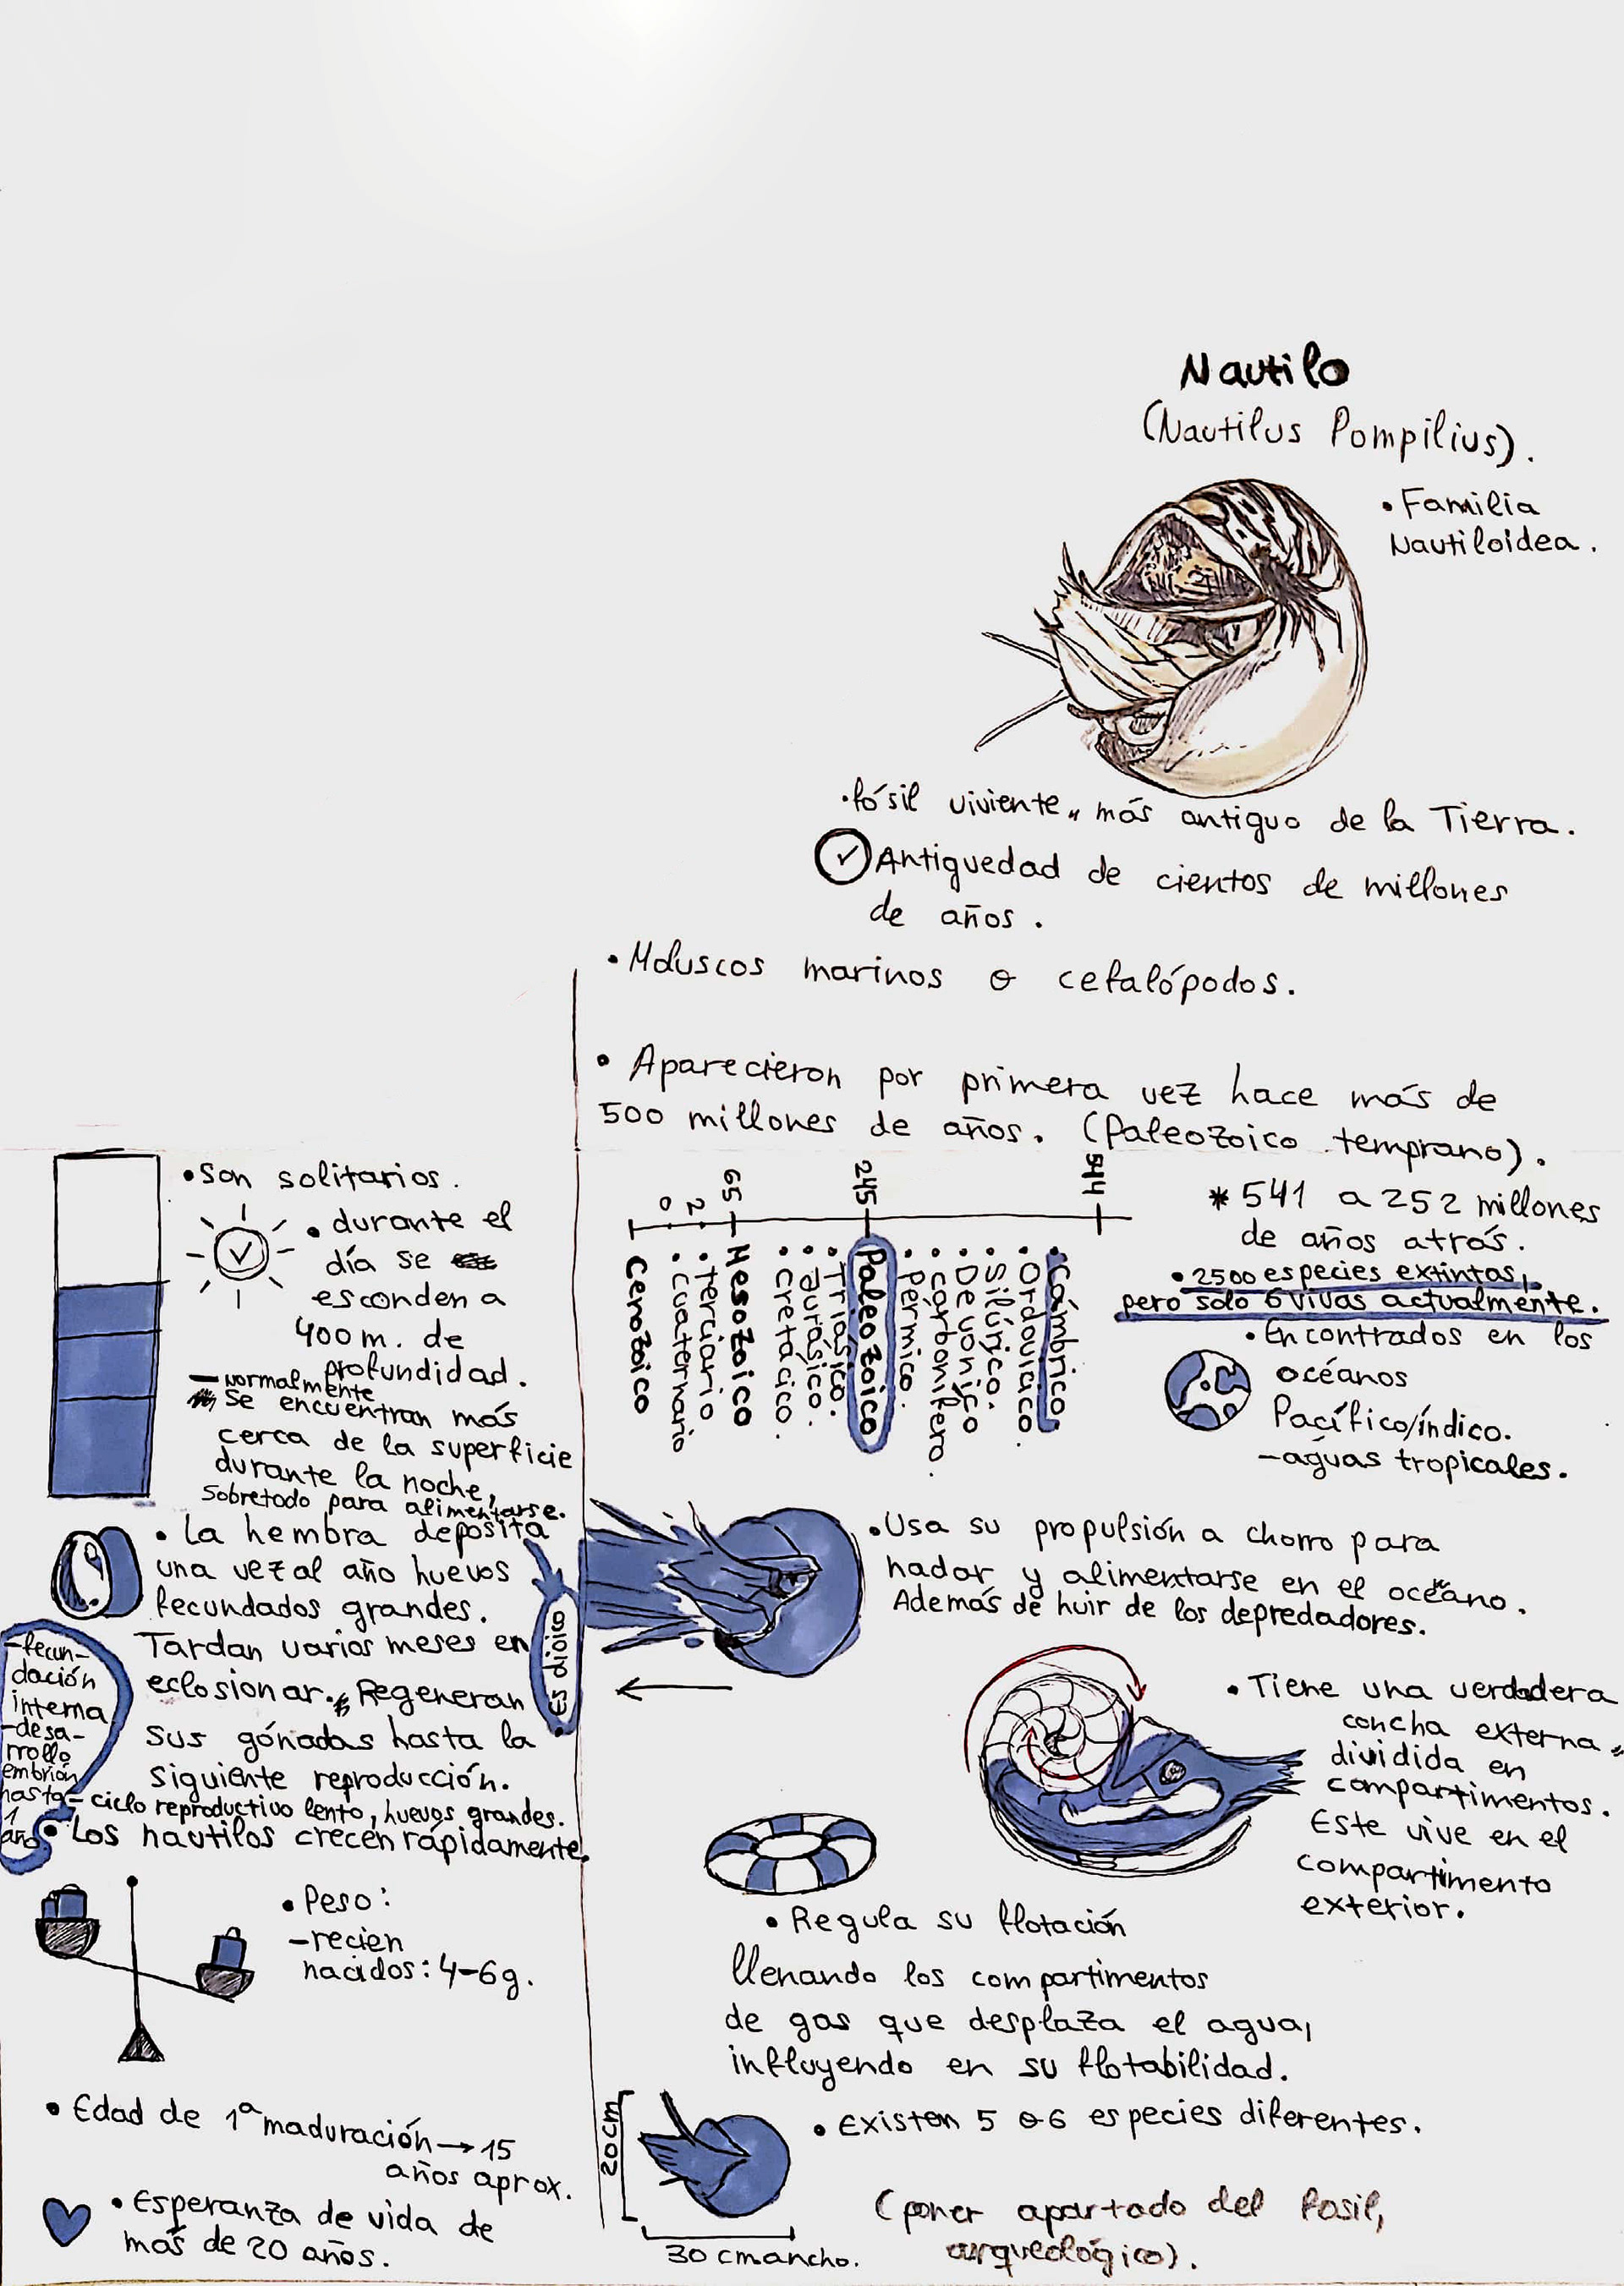 Nautilo
(Nautilus Pompilius).
• Familia
Nautiloidea.
• fósil viviente, más antiguo de la Tierra.
Antiguedad de cientos de millones
de años.
• Moluscos marinos o cefalópodos.
• Aparecieron por primera vez hace más de
500 millones de años. (Paleozoico temprano).
* 541 a 252 millones
de años atrás.
• 2500 especies extintas,
pero solo 6 vivas actualmente.
• Encontrados en los
océanos
Pacífico/índico.
- aguas tropicales.
0
2
65
245
544
Cenozoico
• Cuaternario
• Terciario
Mesozoico
• Cretácico.
• Jurásico.
• Triásico.
Paleozoico
• Pérmico.
• Carbonífero.
• Devónico
• Silúrico.
• Ordovícico.
• Cámbrico
• Usa su propulsión a chorro para
nadar y alimentarse en el océano.
Además de huir de los depredadores.
• Tiene una verdadera
concha externa
dividida en
compartimentos.
Este vive en el
compartimento
exterior.
• Regula su flotación
llenando los compartimentos
de gas que desplaza el agua,
influyendo en su flotabilidad.
• Existen 5 o 6 especies diferentes.
20cm
30 cmancho.
(poner apartado del fosil,
arqueológico).
• Son solitarios.
• durante el
día se
esconden a
400 m. de
profundidad.
- normalmente
se encuentran más
cerca de la superficie
durante la noche,
sobretodo para alimentarse.
• La hembra deposita
una vez al año huevos
fecundados grandes.
Tardan varios meses en
eclosionar. Regeneran
sus gónadas hasta la
siguiente reproducción.
- ciclo reproductivo lento, huevos grandes.
• Es dioico
- fecun-
dación
interna
- desa-
rrollo
embrión
hasta
1
año
• Los nautilos crecen rápidamente.
• Peso:
- recien
nacidos: 4-6g.
• Edad de 1ª maduración → 15
años aprox.
• Esperanza de vida de
más de 20 años.